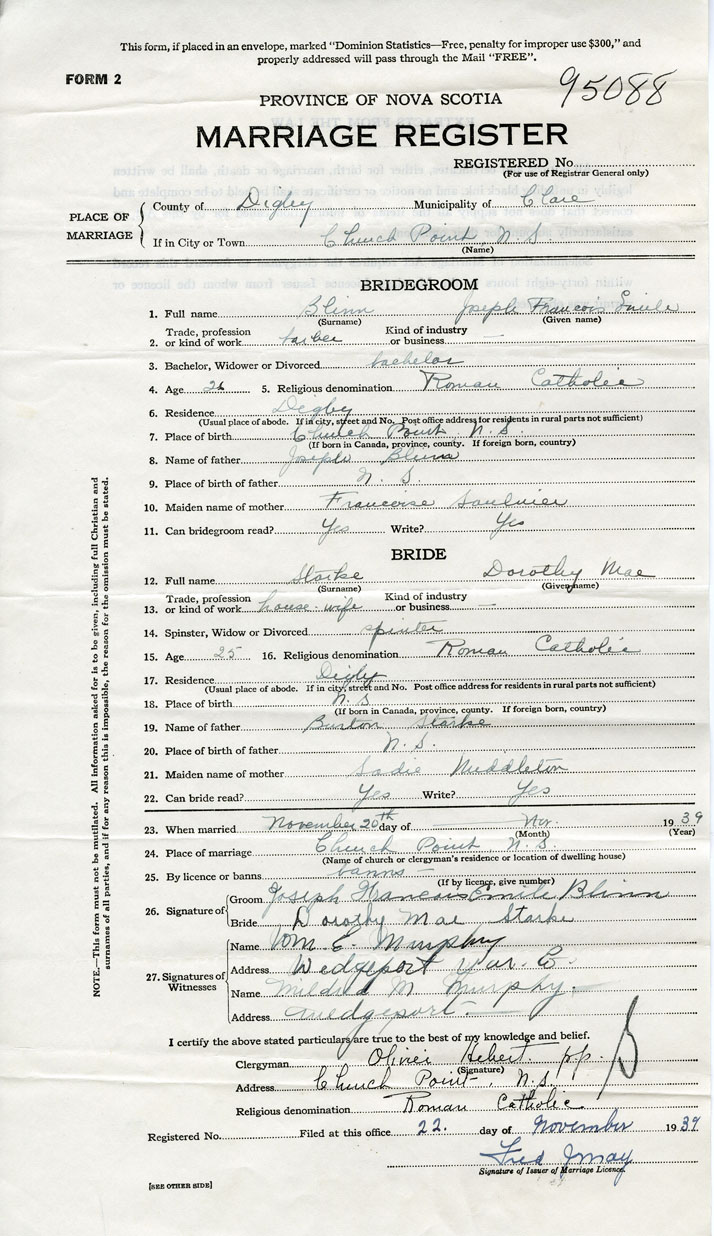 This form, if placed in an envelope, marked "Dominion Statistics—Free, penalty for improper use $300," and
properly addressed will pass through the Mail "FREE".
FORM 2
95088
PROVINCE OF NOVA SCOTIA
MARRIAGE REGISTER
REGISTERED No.
(For use of Registrar General only)
PLACE OF MARRIAGE
County of Digby Municipality of Clare
If in City or Town Church Point, N.S.
(Name)
BRIDEGROOM
1. Full name Blinn Joseph Francois Emile
(Surname) (Given name)
2. Trade, profession or kind of work barber Kind of industry or business —
3. Bachelor, Widower or Divorced bachelor
4. Age 26 5. Religious denomination Roman Catholic
6. Residence Digby
(Usual place of abode. If in city, street and No. Post office address for residents in rural parts not sufficient)
7. Place of birth Church Point N.S.
(If born in Canada, province, county. If foreign born, country)
8. Name of father Joseph Blinn
9. Place of birth of father N.S.
10. Maiden name of mother Francoise Saulnier
11. Can bridegroom read? Yes Write? Yes
BRIDE
12. Full name Starke Dorothy Mae
(Surname) (Given name)
13. Trade, profession or kind of work house-wife Kind of industry or business —
14. Spinster, Widow or Divorced spinter
15. Age 25 16. Religious denomination Roman Catholic
17. Residence Digby
(Usual place of abode. If in city, street and No. Post office address for residents in rural parts not sufficient)
18. Place of birth N.S.
(If born in Canada, province, county. If foreign born, country)
19. Name of father Burton Starke
20. Place of birth of father N.S.
21. Maiden name of mother Sadie Middleton
22. Can bride read? Yes Write? Yes
23. When married November 20th day of Nov. 1939
(Month) (Year)
24. Place of marriage Church Point, N.S.
(Name of church or clergyman's residence or location of dwelling house)
25. By licence or banns banns —
(If by licence, give number)
26. Signature of
Groom Joseph Francis Emile Blinn
Bride Dorothy Mae Starke
27. Signatures of Witnesses
Name Wm. E. Murphy
Address Wedgeport Yar. Co.
Name Mildred M. Murphy.
Address Wedgeport.
I certify the above stated particulars are true to the best of my knowledge and belief.
Clergyman Olivier Hebert p.p.
(Signature)
Address Church Point, N.S.
Religious denomination Roman Catholic
Registered No. Filed at this office 22. day of November 1939
Signature of Issuer of Marriage Licence.
[SEE OTHER SIDE]
NOTE.—This form must not be mutilated. All information asked for is to be given, including full Christian and
surnames of all parties, and if for any reason this is impossible, the reason for the omission must be stated.